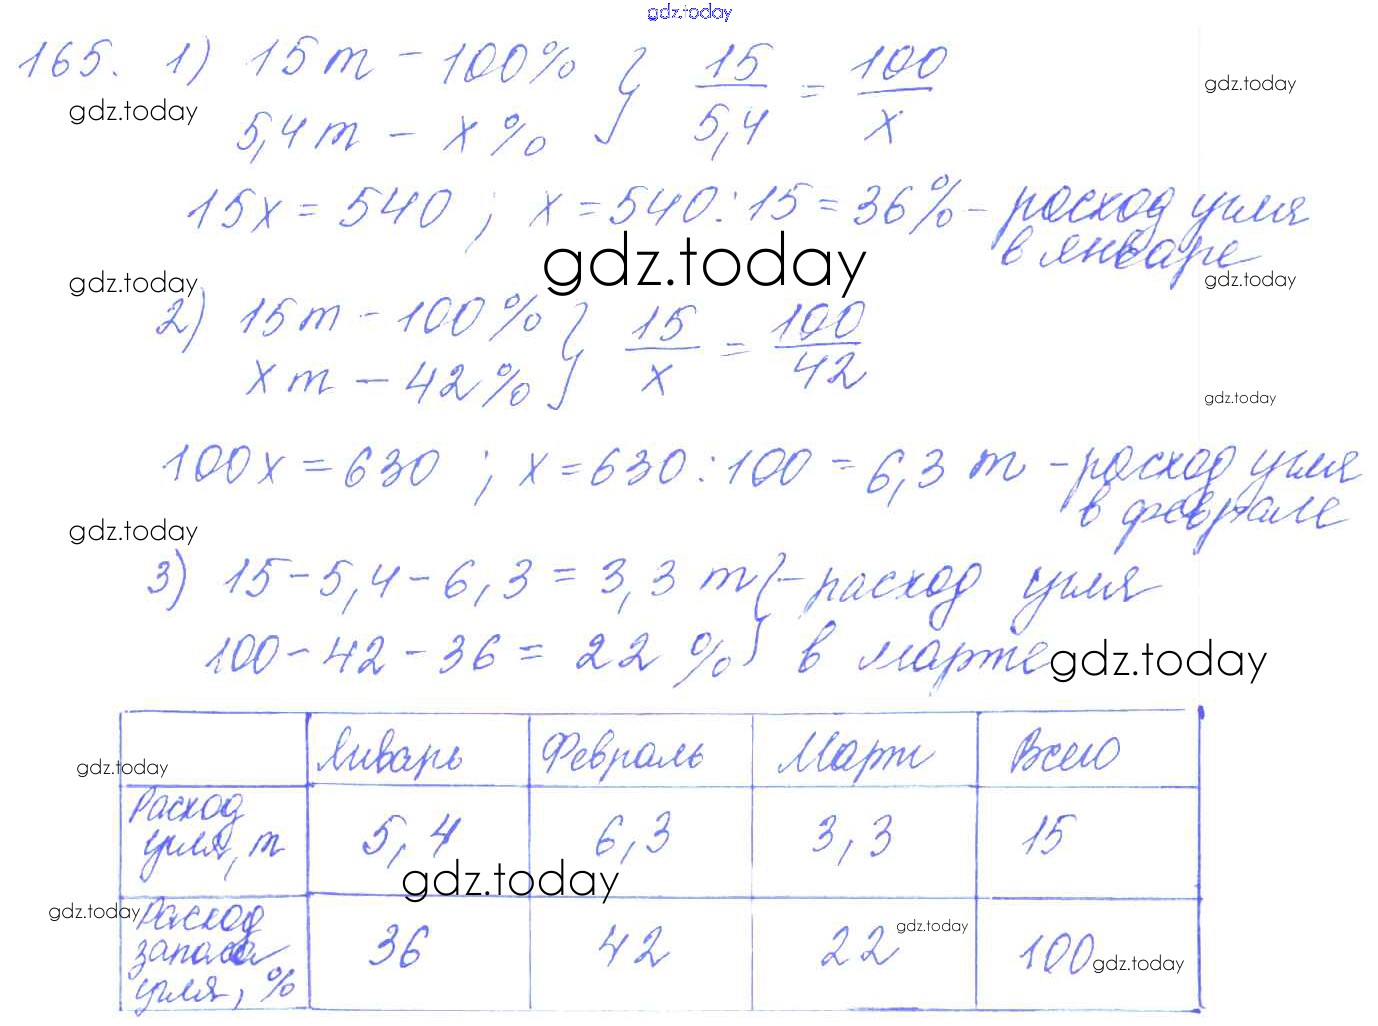 gdz.today
165. 1) 15 т – 100% } 15/5,4 = 100/x
gdz.today
gdz.today
5,4 т – x %
15x = 540 ; x = 540 : 15 = 36% – расход угля
в январе
gdz.today
gdz.today
gdz.today
2) 15 т – 100% } 15/x = 100/42
x т – 42%
gdz.today
100x = 630 ; x = 630 : 100 = 6,3 т – расход угля
в феврале
gdz.today
3) 15 – 5,4 – 6,3 = 3,3 т } – расход угля
100 – 42 – 36 = 22 % в марте
gdz.today
Январь Февраль Март Всего
gdz.today
Расход
угля, т 5,4 6,3 3,3 15
gdz.today
gdz.today
Расход
запаса
угля, % 36 42 22 100
gdz.today
gdz.today